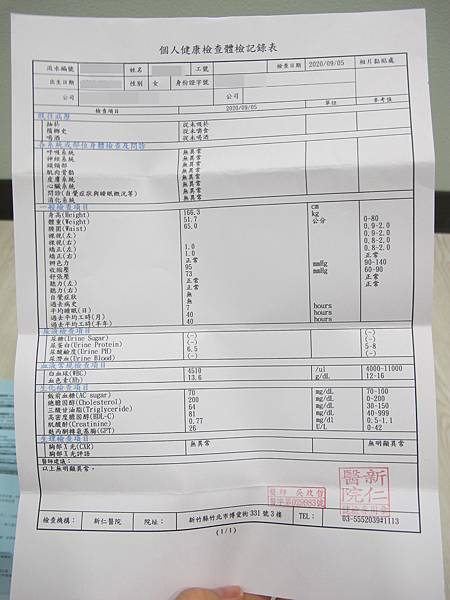 個人健康檢查體檢記錄表
流水編號 姓名 工號 檢查日期 2020/09/05 相片黏貼處
出生日期 性別 女 身份證字號
公司 公司
檢查項目 2020/09/05 單位 參考值
既往病歷
抽菸 從未吸菸
檳榔史 從未嚼食
喝酒 從未喝酒
各系統或部位身體檢查及問診
呼吸系統 無異常
神經系統 無異常
頭頸部 無異常
肌肉骨骼 無異常
皮膚系統 無異常
心臟系統 無異常
問診(自覺症狀與睡眠概況等) 無異常
消化系統 無異常
一般檢查項目
身高(Height) 166.3 cm
體重(Weight) 51.7 kg
腰圍(Waist) 65.0 公分 0-80
裸視(左) 0.9-2.0
裸視(右) 0.9-2.0
矯正(左) 1.0 0.8-2.0
矯正(右) 1.0 0.8-2.0
辨色力 正常 正常
收縮壓 95 mmHg 90-140
舒張壓 73 mmHg 60-90
聽力(左) 正常 正常
聽力(右) 正常 正常
自覺症狀 無
過去病史 無
平均睡眠(日) 7 hours
過去平均工時(月) 40 hours
過去平均工時(半年) 40 hours
尿液檢查項目
尿糖(Urine Sugar) (-) (-)
尿蛋白(Urine Protein) (-) (-)
尿酸鹼度(Urine PH) 6.5 5-8
尿潛血(Urine Blood) (-) (-)
血液常規檢查項目
白血球(WBC) 4510 /ul 4000-11000
血色素(Hb) 13.6 g/dL 12-16
生化檢查項目
飯前血糖(AC sugar) 70 mg/dL 70-100
總膽固醇(Cholesterol) 200 mg/dL 0-200
三酸甘油脂(Triglyceride) 64 mg/dL 30-150
高密度膽固醇(HDL-C) 81 mg/dL 40-999
肌酸酐(Creatinine) 0.77 mg/dl 0.5-1.1
麩丙酮轉氨基脢(GPT) 26 U/L 0-42
生理檢查項目
胸部X光(CXR) 無異常 無明顯異常
胸部X光評語
醫師建議:
以上無明顯異常。
醫師 吳玫哲
醫字第029983號
新仁
醫院
檢查機構: 新仁醫院 院址: 新竹縣竹北市博愛街331號3樓 TEL: 03-5552039#1113
(1/1)